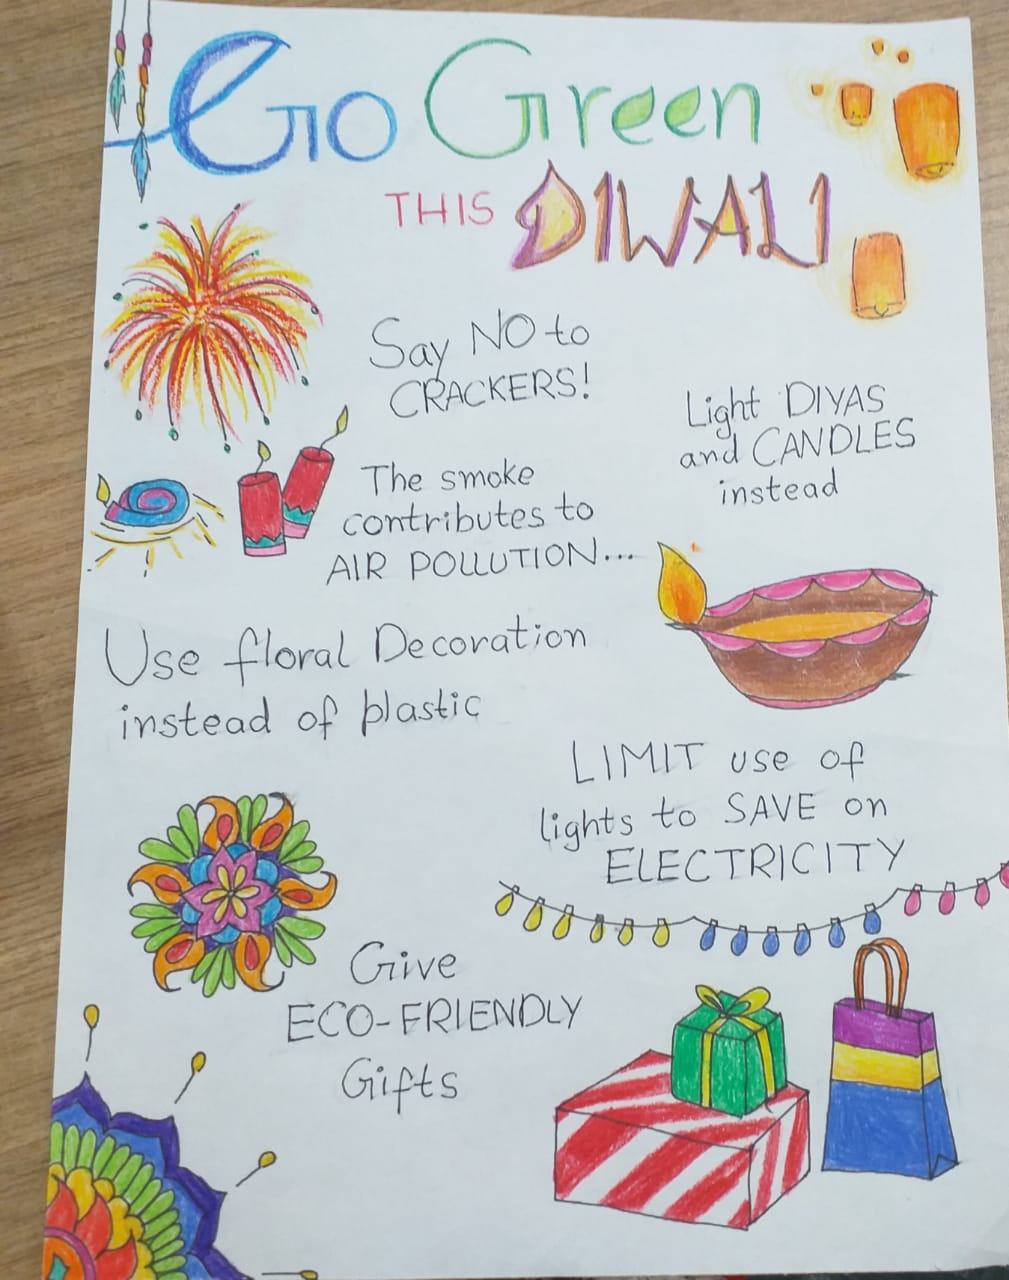 Go Green
THIS DIWALI
Say NO to
CRACKERS!
Light DIYAS
and CANDLES
instead
The smoke
contributes to
AIR POLLUTION...
Use floral Decoration
instead of plastic
LIMIT use of
lights to SAVE on
ELECTRICITY
Give
ECO-FRIENDLY
Gifts